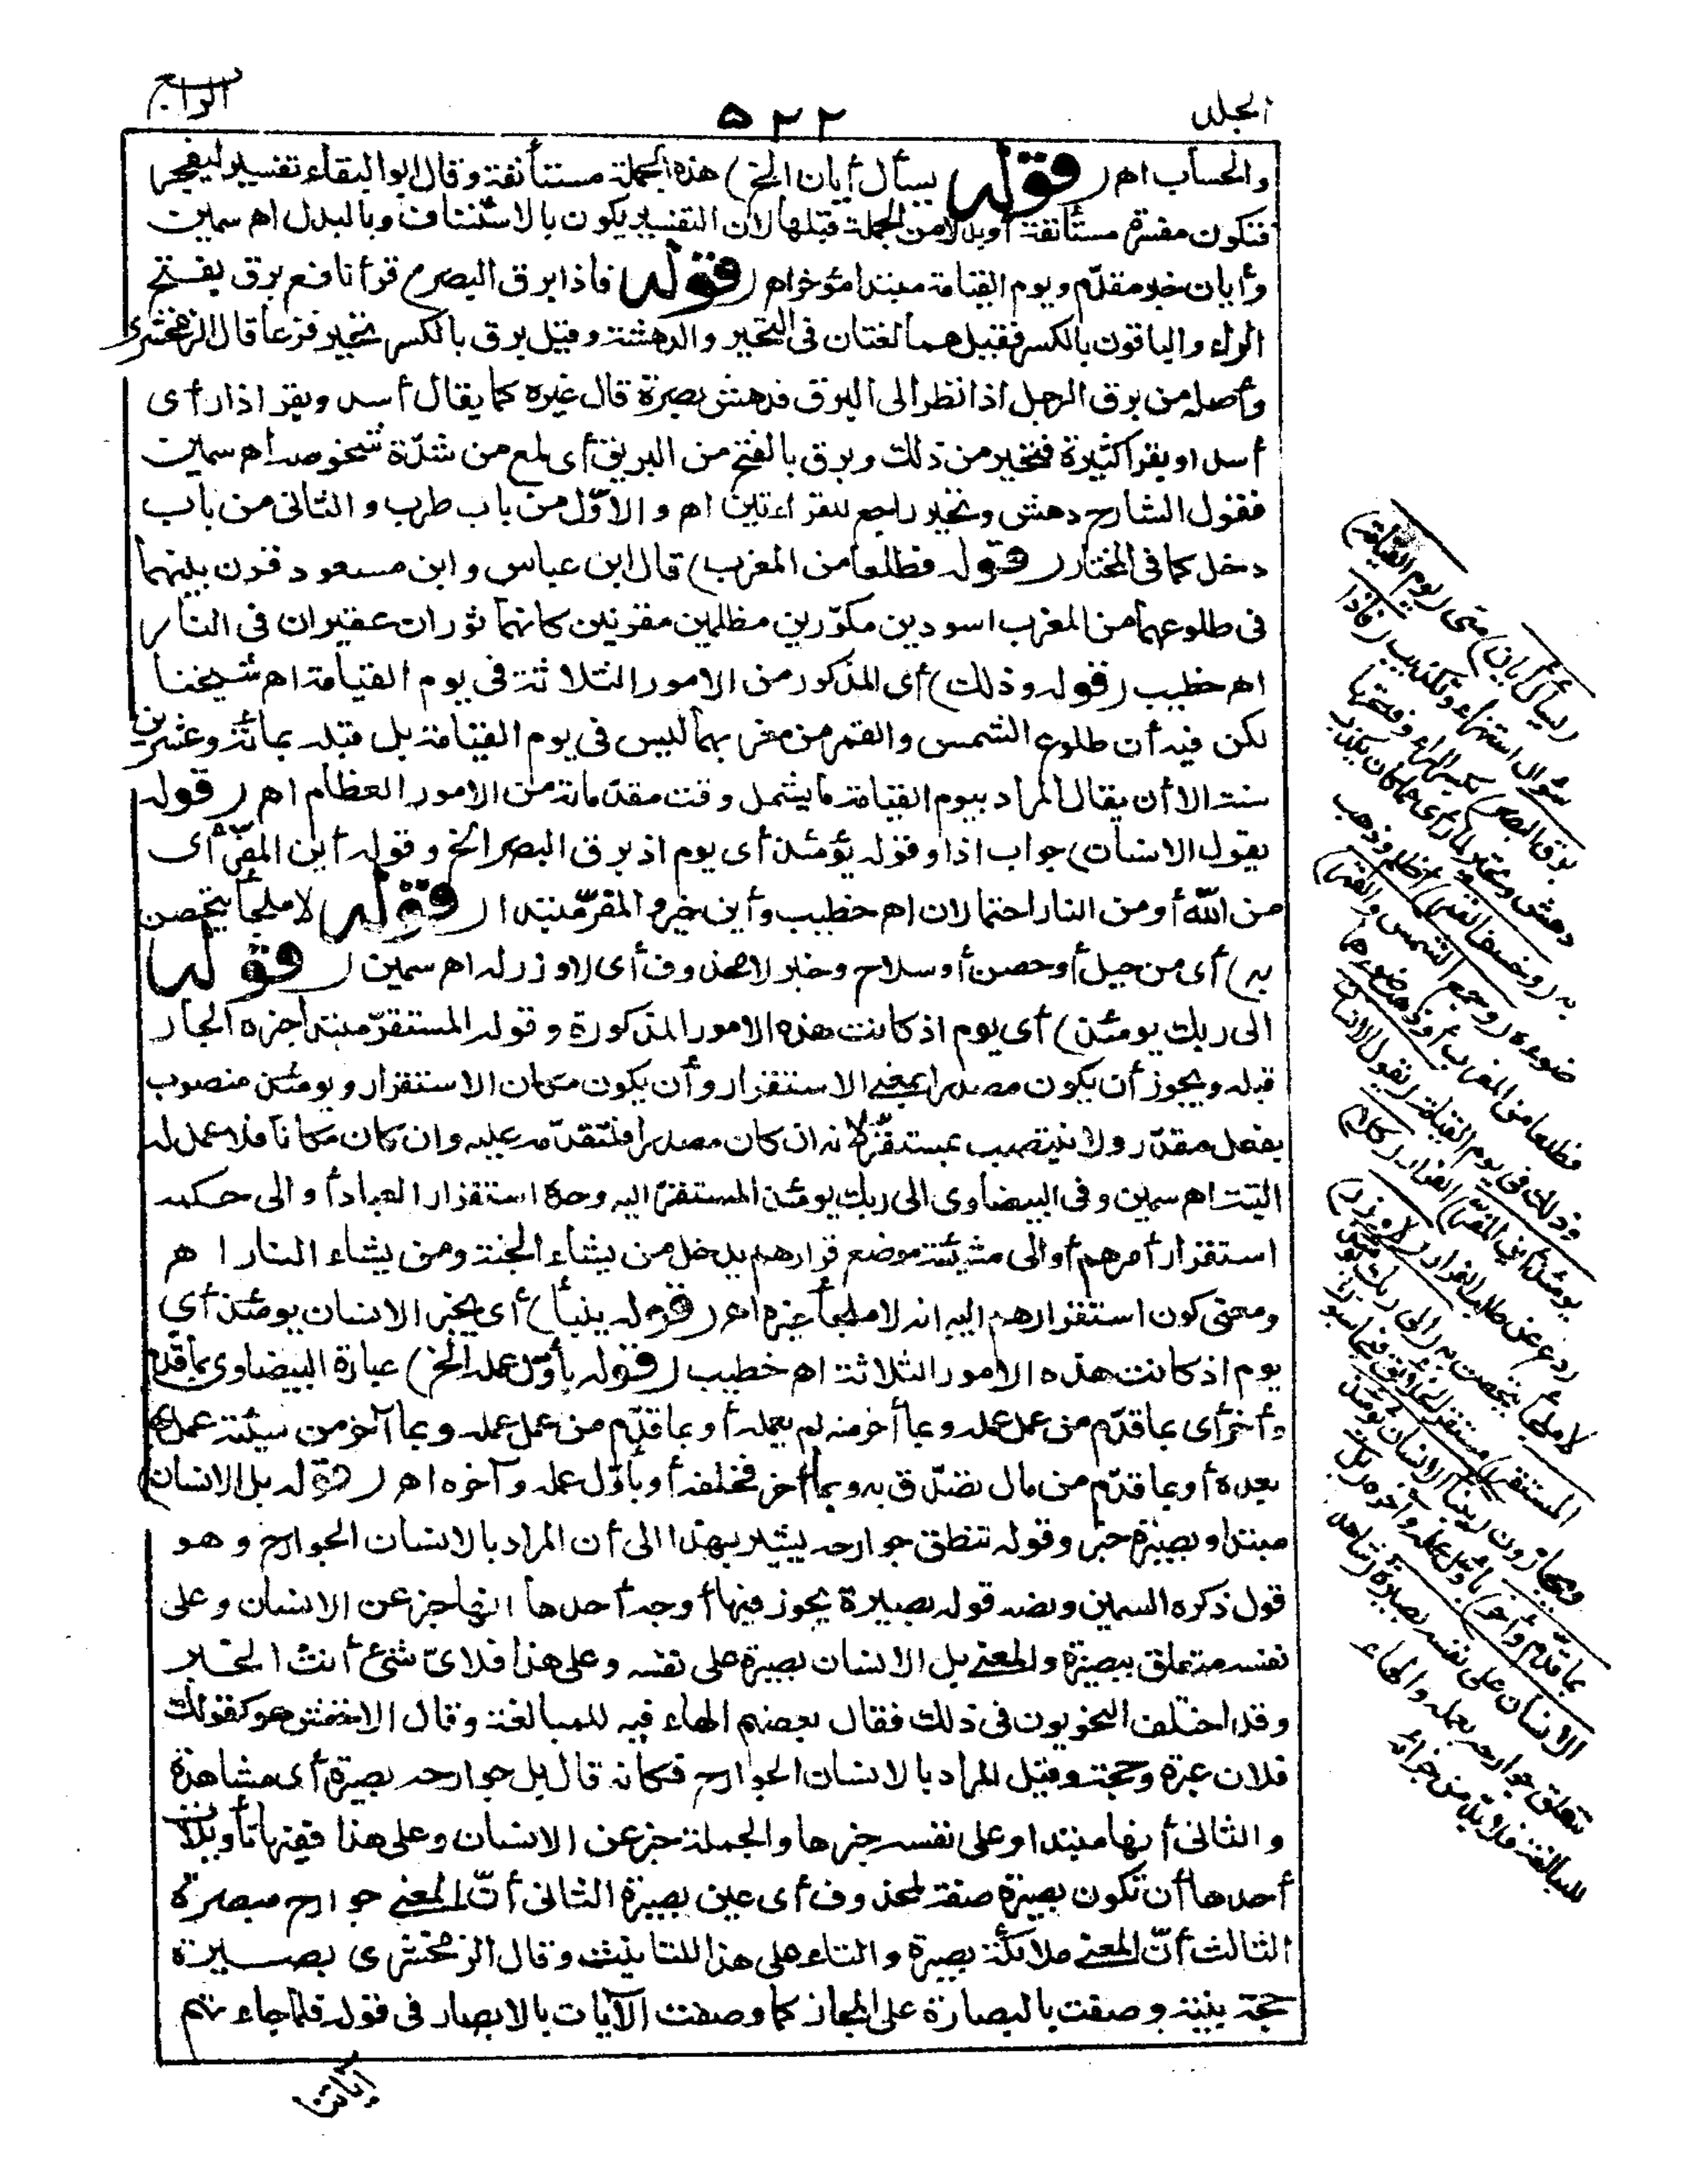 الجلد
٥٢٢
الرابع
والحساب اه (قوله يسأل أيان الخ) هذه الجملة مستأنفة وقال ابو البقاء تفسير ليفجر
فتكون مفسرة مستأنفة أو بدلا من الجملة قبلها لان التفسير يكون بالاستئناف وبالبدل اه سمين
وأيان خبر مقدّم ويوم القيامة مبتدا مؤخر اه (قوله فاذا برق البصر) قرأ نافع برق بفتح
الراء والباقون بالكسر فقيل هما لغتان فى التحير والدهشة وقيل برق بالكسر تحير فزعا قال الزمخشرى
وأصله من برق الرجل اذا نظر الى البرق فدهش بصره قال غيره كما يقال أسد وبقر اذا رأى
أسدا وبقرا كثيرة فتحير من ذلك وبرق بالفتح من البريق أى لمع من شدّة شخوصه اه سمين
فقول الشارح دهش وتحير راجع للقراءتين اه والاوّل من باب طرب والثانى من باب
دخل كما فى المختار (قوله فطلعا من المغرب) قال ابن عباس وابن مسعود قرن بينهما
فى طلوعهما من المغرب اسودين مكوّرين مظلمين مقرنين كانهما ثوران عقيران فى النار
اه خطيب (قوله وذلك) أى المذكور من الامور الثلاثة فى يوم القيامة اه شيخنا
لكن فيه أن طلوع الشمس والقمر من مغربهما ليس فى يوم القيامة بل قبله بمائة وعشرين
سنة الا أن يقال المراد بيوم القيامة ما يشمل وقت مقدّماته من الامور العظام اه (قوله
يقول الانسان) جواب اذا وقوله يومئذ أى يوم اذ برق البصر الخ وقوله أين المفرّ أى
من الله أو من النار احتمالان اه خطيب وأين خبر والمفرّ مبتدا (قوله لا ملجأ يتحصن
به) أى من جبل أو حصن أو سلاح وخبر لا محذوف أى لا وزر له اه سمين (قوله
الى ربك يومئذ) أى يوم اذ كانت هذه الامور المذكورة وقوله المستقرّ مبتدأ خبره الجار
قبله ويجوز أن يكون مصدرا بمعنى الاستقرار وأن يكون مكان الاستقرار ويومئذ منصوب
بفعل مقدّر ولا ينتصب بمستقرّ لانه ان كان مصدرا فلتقدّمه عليه وان كان مكانا فلا عمل له
البتة اه سمين وفى البيضاوى الى ربك يومئذ المستقرّ اليه وحده استقرار العباد أو الى حكمه
استقرار أمرهم أو الى مشيئته موضع قرارهم يدخل من يشاء الجنة ومن يشاء النار اه
ومعنى كون استقرارهم اليه انه لا ملجأ غيره اه (قوله ينبأ) أى يخبر الانسان يومئذ أى
يوم اذ كانت هذه الامور الثلاثة اه خطيب (قوله بأوّل عمله الخ) عبارة البيضاوى بما قدّم
وأخر أى بما قدّم من عمل عمله وبما أخر منه لم يعمله أو بما قدّم من عمل عمله وبما أخر من سيئة عمل بها
بعده أو بما قدّم من مال تصدّق به وبما أخر فخلفه أو بأوّل عمله وآخره اه (قوله بل الانسان)
مبتدا وبصيرة خبر وقوله تنطق جوارحه يشير بهذا الى أن المراد بالانسان الجوارح وهو
قول ذكره السمين ونصه قوله بصيرة يجوز فيها أوجه أحدها انها خبر عن الانسان وعلى
نفسه متعلق ببصيرة والمعنى بل الانسان بصيرة على نفسه وعلى هذا فلاىّ شئ أنث الخبر
وقد اختلف النحويون فى ذلك فقال بعضهم الهاء فيه للمبالغة وقال الاخفش هو كقولك
فلان عبرة وحجة وقيل المراد بالانسان الجوارح فكانه قال بل جوارحه بصيرة أى مشاهدة
والثانى أنها مبتدا وعلى نفسه خبرها والجملة خبر عن الانسان وعلى هذا ففيها تأويلات
أحدها أن تكون بصيرة صفة لمحذوف أى عين بصيرة الثانى أنّ المعنى جوارح مبصرة
الثالث أنّ المعنى ملائكة بصيرة والتاء على هذا للتانيث وقال الزمخشرى بصيرة
حجة بينة وصفت بالبصارة على المجاز كما وصفت الآيات بالابصار فى قوله فلما جاءتهم
آياتنا
(يسأل أيان) متى (يوم القيامة)
سؤال استهزاء وتكذيب (فاذا
برق البصر) بكسر الراء وفتحها
دهش وتحير لما رأى مما كان يكذب
به (وخسف القمر) أظلم وذهب
ضوءه (وجمع الشمس والقمر)
فطلعا من المغرب أو ذهب ضوءهما
وذلك فى يوم القيامة (يقول الانسان
يومئذ أين المفرّ) الفرار (كلا)
ردع عن طلب الفرار (لا وزر)
لا ملجأ يتحصن به (الى ربك يومئذ
المستقر) مستقر الخلائق فيحاسبون
ويجازون (ينبأ الانسان يومئذ
بما قدّم وأخر) بأوّل عمله وآخره (بل
الانسان على نفسه بصيرة) شاهد
تنطق جوارحه بعمله والهاء
للمبالغة فلا بدّ من جزائه